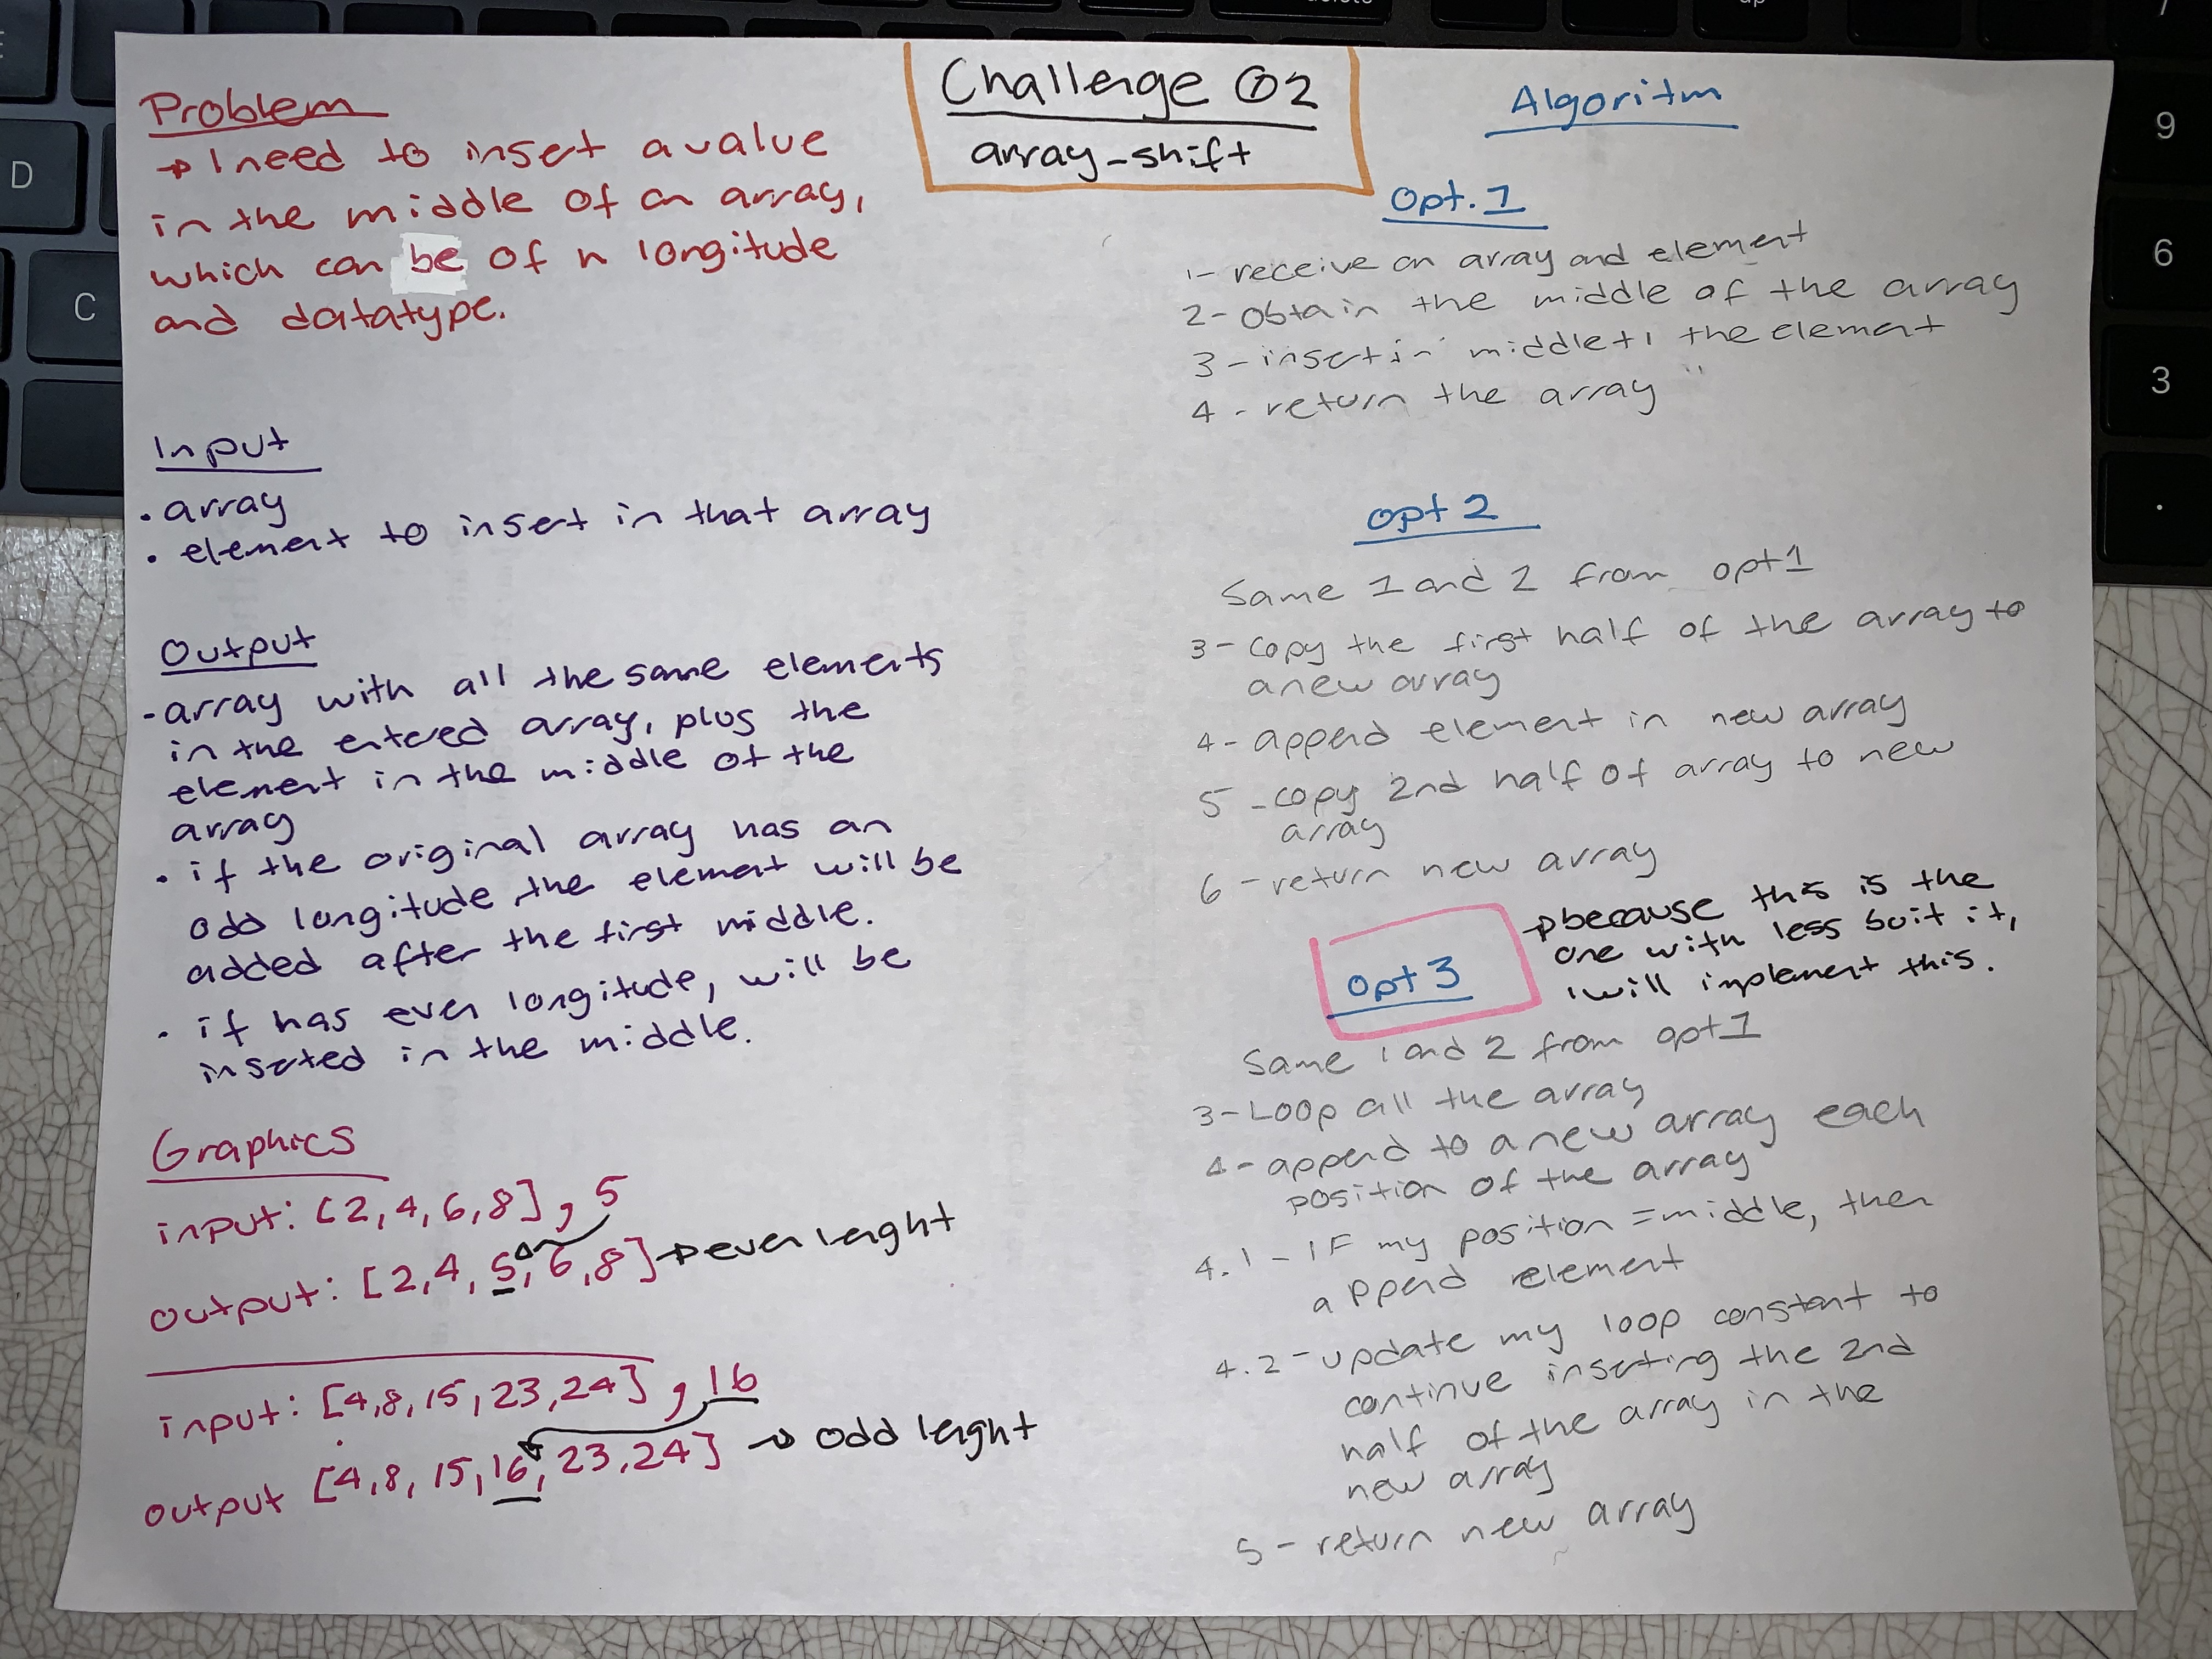 Challenge 02
array-shift
Problem
→ I need to insert a value
in the middle of an array,
which can be of n longitude
and datatype.
Input
. array
. element to insert in that array
Output
- array with all the same elements
in the entered array, plus the
element in the middle of the
array
. if the original array has an
odd longitude the element will be
added after the first middle.
. if has even longitude, will be
inserted in the middle.
Graphics
input: [2,4,6,8] , 5
output: [2,4,5,6,8] → even lenght
input: [4,8,15,23,24] , 16
output [4,8,15,16,23,24] → odd lenght
Algoritm
Opt. 1
1- receive an array and element
2- obtain the middle of the array
3- insert in middle+1 the element
4- return the array
opt 2
Same 1 and 2 from opt1
3- copy the first half of the array to
a new array
4- append element in new array
5- copy 2nd half of array to new
array
6- return new array
opt 3
→ because this is the
one with less buit it,
I will implement this.
Same 1 and 2 from opt1
3- Loop all the array
4- append to a new array each
position of the array
4.1- IF my position = middle, then
append element
4.2- update my loop constant to
continue inserting the 2nd
half of the array in the
new array
5- return new array
D
C
9
6
3
.